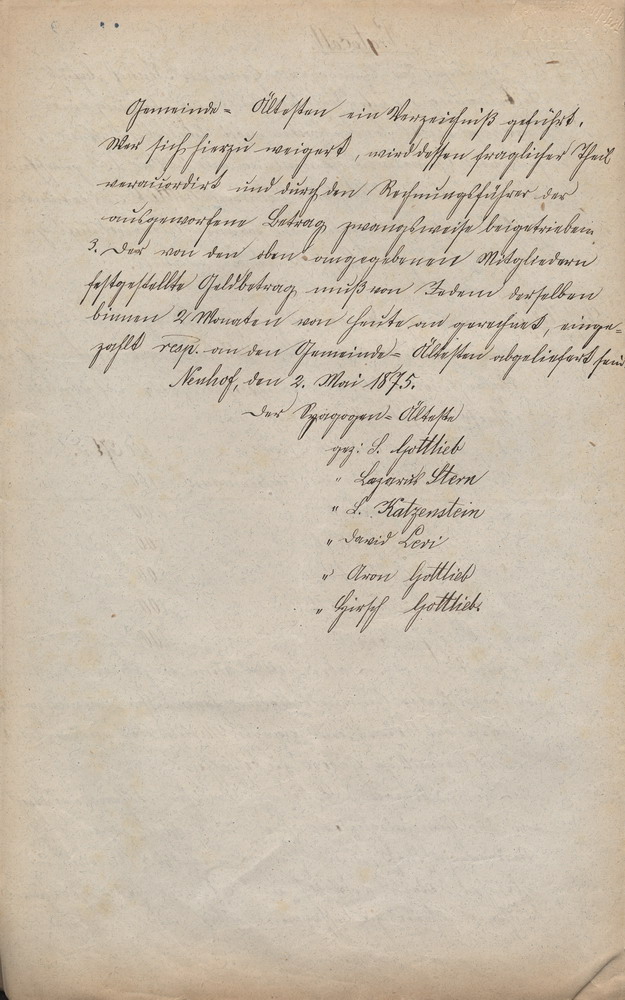 Gemeinde= Ältesten ein Verzeichniß geführt.
Wer sich hierzu weigert, wird dessen fraglicher Theil
und durch den Rechnungsführer der
ausgeworfene Betrag zwangsweise beigetrieben
3. Der von den oben angegebenen Mitgliedern
festgestellte Geldbetrag muß von Jedem derselben
binnen 2 Monaten von heute an gerechnet, einge=
zahlt resp. an den Gemeinde= Ältesten abgeliefert sein
Neuhof, den 2. Mai 1875.
Der Synagogen= Älteste
gez: S. Gottlieb
" Lazarus Stern
" S. Katzenstein
" David Levi
" Aron Gottlieb
" Hirsch Gottlieb